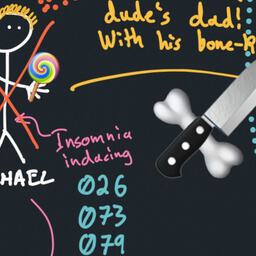 dude's dad!
With his bone-k
Insomnia
inducing
HAEL
026
073
079